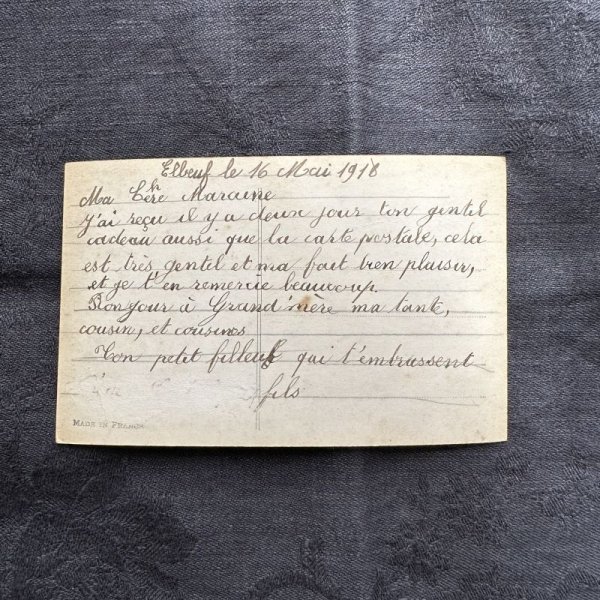 Elbeuf le 16 Mai 1918
Ma Chère Maraine
J'ai reçu il y a deux jour ton gentil
cadeau aussi que la carte postale, cela
est très gentel et ma fait bien plaisir,
et je t'en remercie beaucoup.
Bonjour à Grand'mère ma tante,
cousin, et cousines
Ton petit filleul qui t'embrassent
fils
MADE IN FRANCE